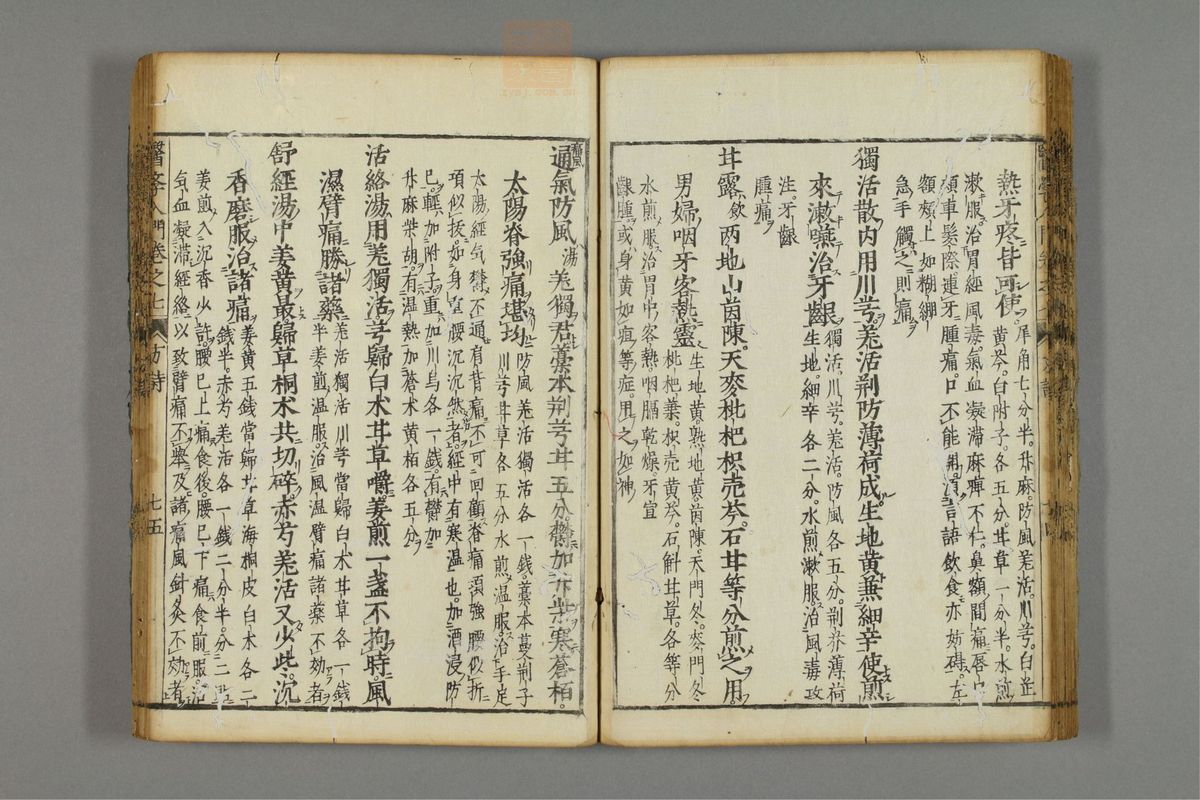 熱牙疼皆可使
犀角七分半。升麻。防風。羌活。川芎。白芷
黃芩。白附子。各五分。甘草一分半。水煎
漱服。治胃經風毒。氣血凝滯。麻痺不仁。鼻額間痛。唇口
頰車髮際連牙腫痛。口不能開。言語飲食亦妨碍。左
額頰上如糊綳
急手觸之則痛
獨活散内用川芎。羌活荆防薄荷成。生地黃兼細辛使煎
來漱嚥治牙齦
獨活。川芎。羌活。防風各五分。荆芥薄荷
生地。細辛各二分。水煎漱服。治風毒攻
注。牙齦
腫痛
甘露飲两地山茵陳。天麥枇杷枳壳芩。石甘等分煎之用。
男婦咽牙客熱靈
生地黃。熟地黃。茵陳。天門冬。麥門冬
枇杷葉。枳壳。黃芩。石斛。甘草。各等分
水煎服。治胃中客熱。咽膈乾燥。牙宣
齦腫。或身黃如疸等症。用之如神
通氣防風湯羌獨君藁本荆芎甘五分欝加升柴寒蒼栢。
太陽脊強痛堪均
防風羌活獨活各一錢。藁本蔓荆子
川芎甘草各五分水煎温服。治手足
太陽經氣欝不通。肩背痛。不可回顧。脊痛項強。腰似折
項似拔。如身重腰沉沉然者。經中有寒温也。加酒浸防
已。輕加附子。重加川烏各一錢。有欝加
升麻柴胡。有温熱加蒼术黃栢各五分
活絡湯用羌獨活芎歸白术甘草嚼姜煎一盞不拘時。風
濕臂痛勝諸藥
羌活獨活川芎當歸白术甘草各一錢
半姜煎。温服。治風温臂痛諸藥不効者
舒經湯中姜黃最歸草桐术共切碎赤芍羌活又少此。沉
香磨服治諸痛
姜黃五錢當歸甘草海桐皮白术各二
錢半。赤芍羌活各一錢二分半。分二貼
姜煎。入沉香少許。腰已上痛食後。腰已下痛。食前服。治
氣血凝滯經絡。以致臂痛不舉。及諸痛風針灸不効者
醫學入門卷之七
方詩
七五
zysj.com.cn